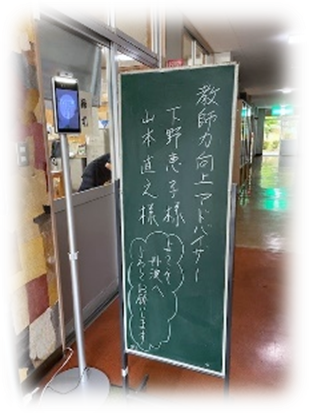 教師力向上アドバイザー
下野恵子様
山本直之様
ようこそ
丹波へ
よろしくお願いします!